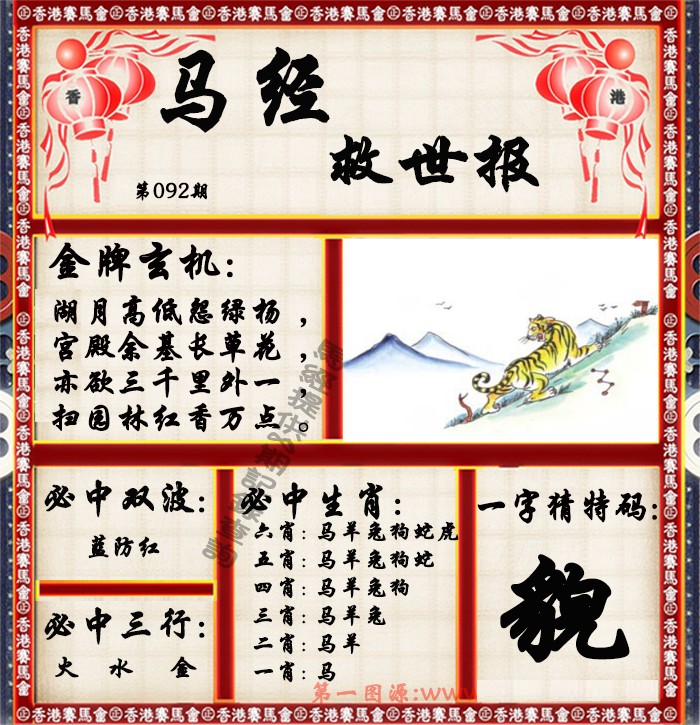 香港賽馬會
香
港
马经
救世报
第092期
金牌玄机：
湖月高低怨绿杨，
宫殿余基长草花，
亦欲三千里外一，
扫园林红香万点。
必中双波：
蓝防红
必中三行：
火 水 金
必中生肖：
六肖：马羊兔狗蛇虎
五肖：马羊兔狗蛇
四肖：马羊兔狗
三肖：马羊兔
二肖：马羊
一肖：马
一字猜特码：
貌
第一图源:www